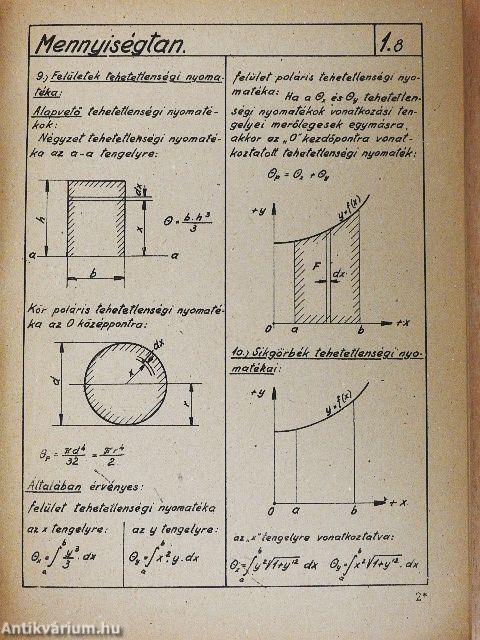 Mennyiségtan.
1.8
9.) Felületek tehetetlenségi nyoma-
téka:
Alapvető tehetetlenségi nyomaté-
kok:
Négyzet tehetetlenségi nyomaté-
ka az a-a tengelyre:
dx
h
x
Θ = b.h³/3
a
a
b
Kör poláris tehetetlenségi nyomaté-
ka az O középpontra:
dx
d
x
r
Θp = πd⁴/32 = πr⁴/2
Általában érvényes:
felület tehetetlenségi nyomatéka
az x tengelyre:
Θx = ∫ₐᵇ y³/3 . dx
az y tengelyre:
Θy = ∫ₐᵇ x².y.dx
felület poláris tehetetlenségi nyo-
matéka: Ha a Θx és Θy tehetetlen-
ségi nyomatékok vonatkozási ten-
gelyei merőlegesek egymásra,
akkor az „O" kezdőpontra vonat-
koztatott tehetetlenségi nyomaték:
Θp = Θx + Θy
+y
y=f(x)
F
dx
0
a
b
+x
10.) Síkgörbék tehetetlenségi nyo-
matékai:
+y
y=f(x)
0
a
b
+x
az „x" tengelyre vonatkoztatva:
Θx = ∫ₐᵇ y²√1+y'² dx
Θy = ∫ₐᵇ x²√1+y'² dx
2*
Antikvárium.hu